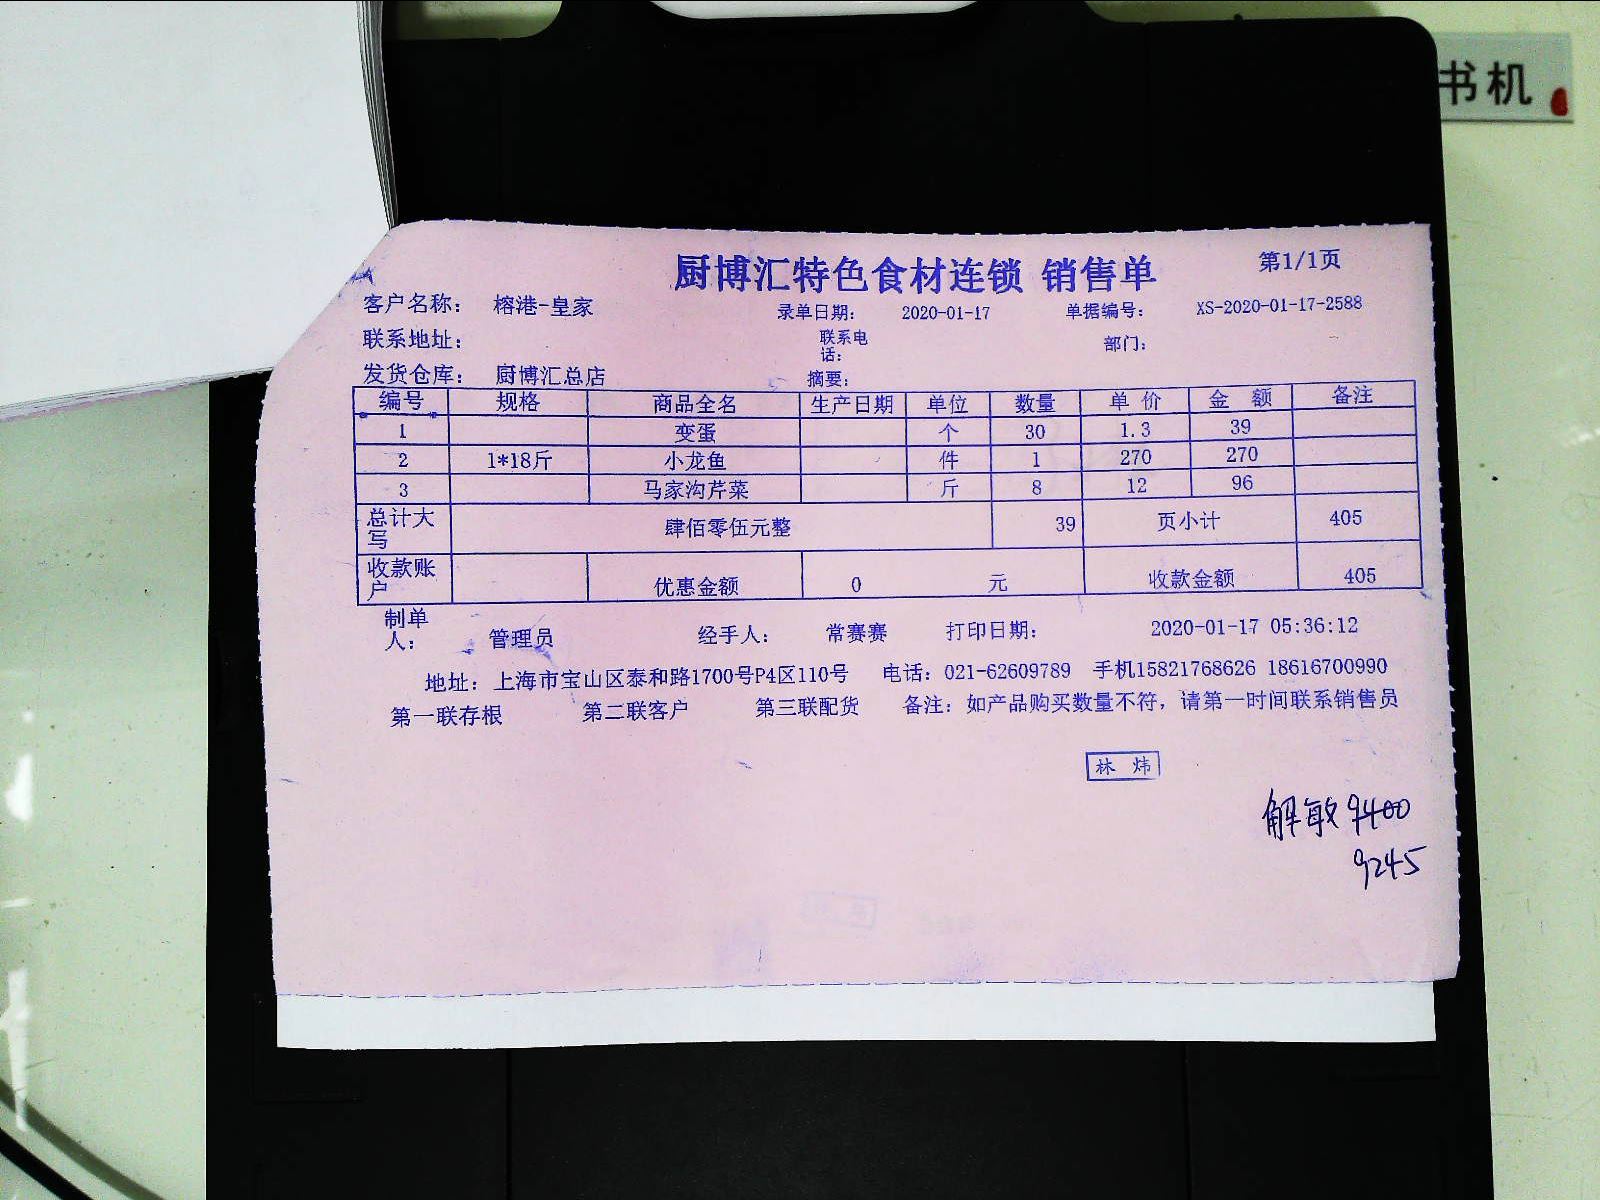 书机
厨博汇特色食材连锁 销售单 第1/1页
客户名称： 榕港-皇家 录单日期： 2020-01-17 单据编号： XS-2020-01-17-2588
联系地址： 联系电话： 部门：
发货仓库： 厨博汇总店 摘要：
编号 规格 商品全名 生产日期 单位 数量 单 价 金 额 备注
1 变蛋 个 30 1.3 39
2 1*18斤 小龙鱼 件 1 270 270
3 马家沟芹菜 斤 8 12 96
总计大写 肆佰零伍元整 39 页小计 405
收款账户 优惠金额 0 元 收款金额 405
制单人： 管理员 经手人： 常赛赛 打印日期： 2020-01-17 05:36:12
地址：上海市宝山区泰和路1700号P4区110号 电话：021-62609789 手机15821768626 18616700990
第一联存根 第二联客户 第三联配货 备注：如产品购买数量不符，请第一时间联系销售员
林 炜
解敏 9400
9245